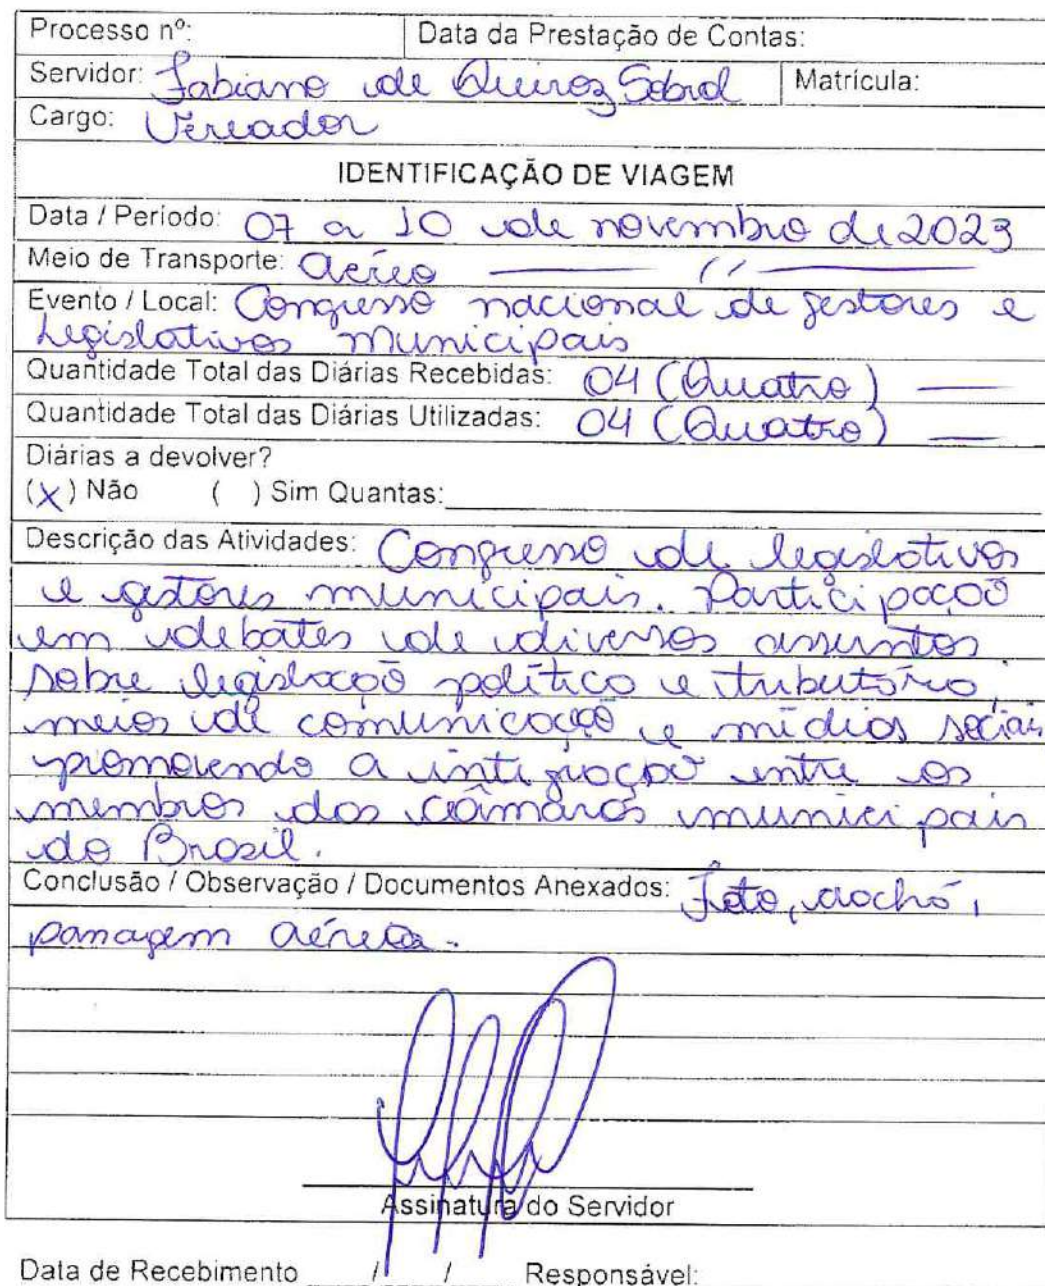 Processo nº: Data da Prestação de Contas:
Servidor: Fabiano de Queiroz Sobral Matrícula:
Cargo: Vereador
IDENTIFICAÇÃO DE VIAGEM
Data / Período: 07 a 10 de novembro de 2023
Meio de Transporte: Aéreo — // —
Evento / Local: Congresso nacional de gestores e
Legislativos municipais
Quantidade Total das Diárias Recebidas: 04 (Quatro) —
Quantidade Total das Diárias Utilizadas: 04 (Quatro) —
Diárias a devolver?
(X) Não ( ) Sim Quantas:
Descrição das Atividades: Congresso de legislativos
e gestores municipais. Participação
em debates de diversos assuntos
sobre legislação político e tributário,
meios de comunicação e mídias sociais
promovendo a integração entre os
membros das câmaras municipais
do Brasil.
Conclusão / Observação / Documentos Anexados: Foto, crachá,
passagem aérea.
Assinatura do Servidor
Data de Recebimento / / Responsável: